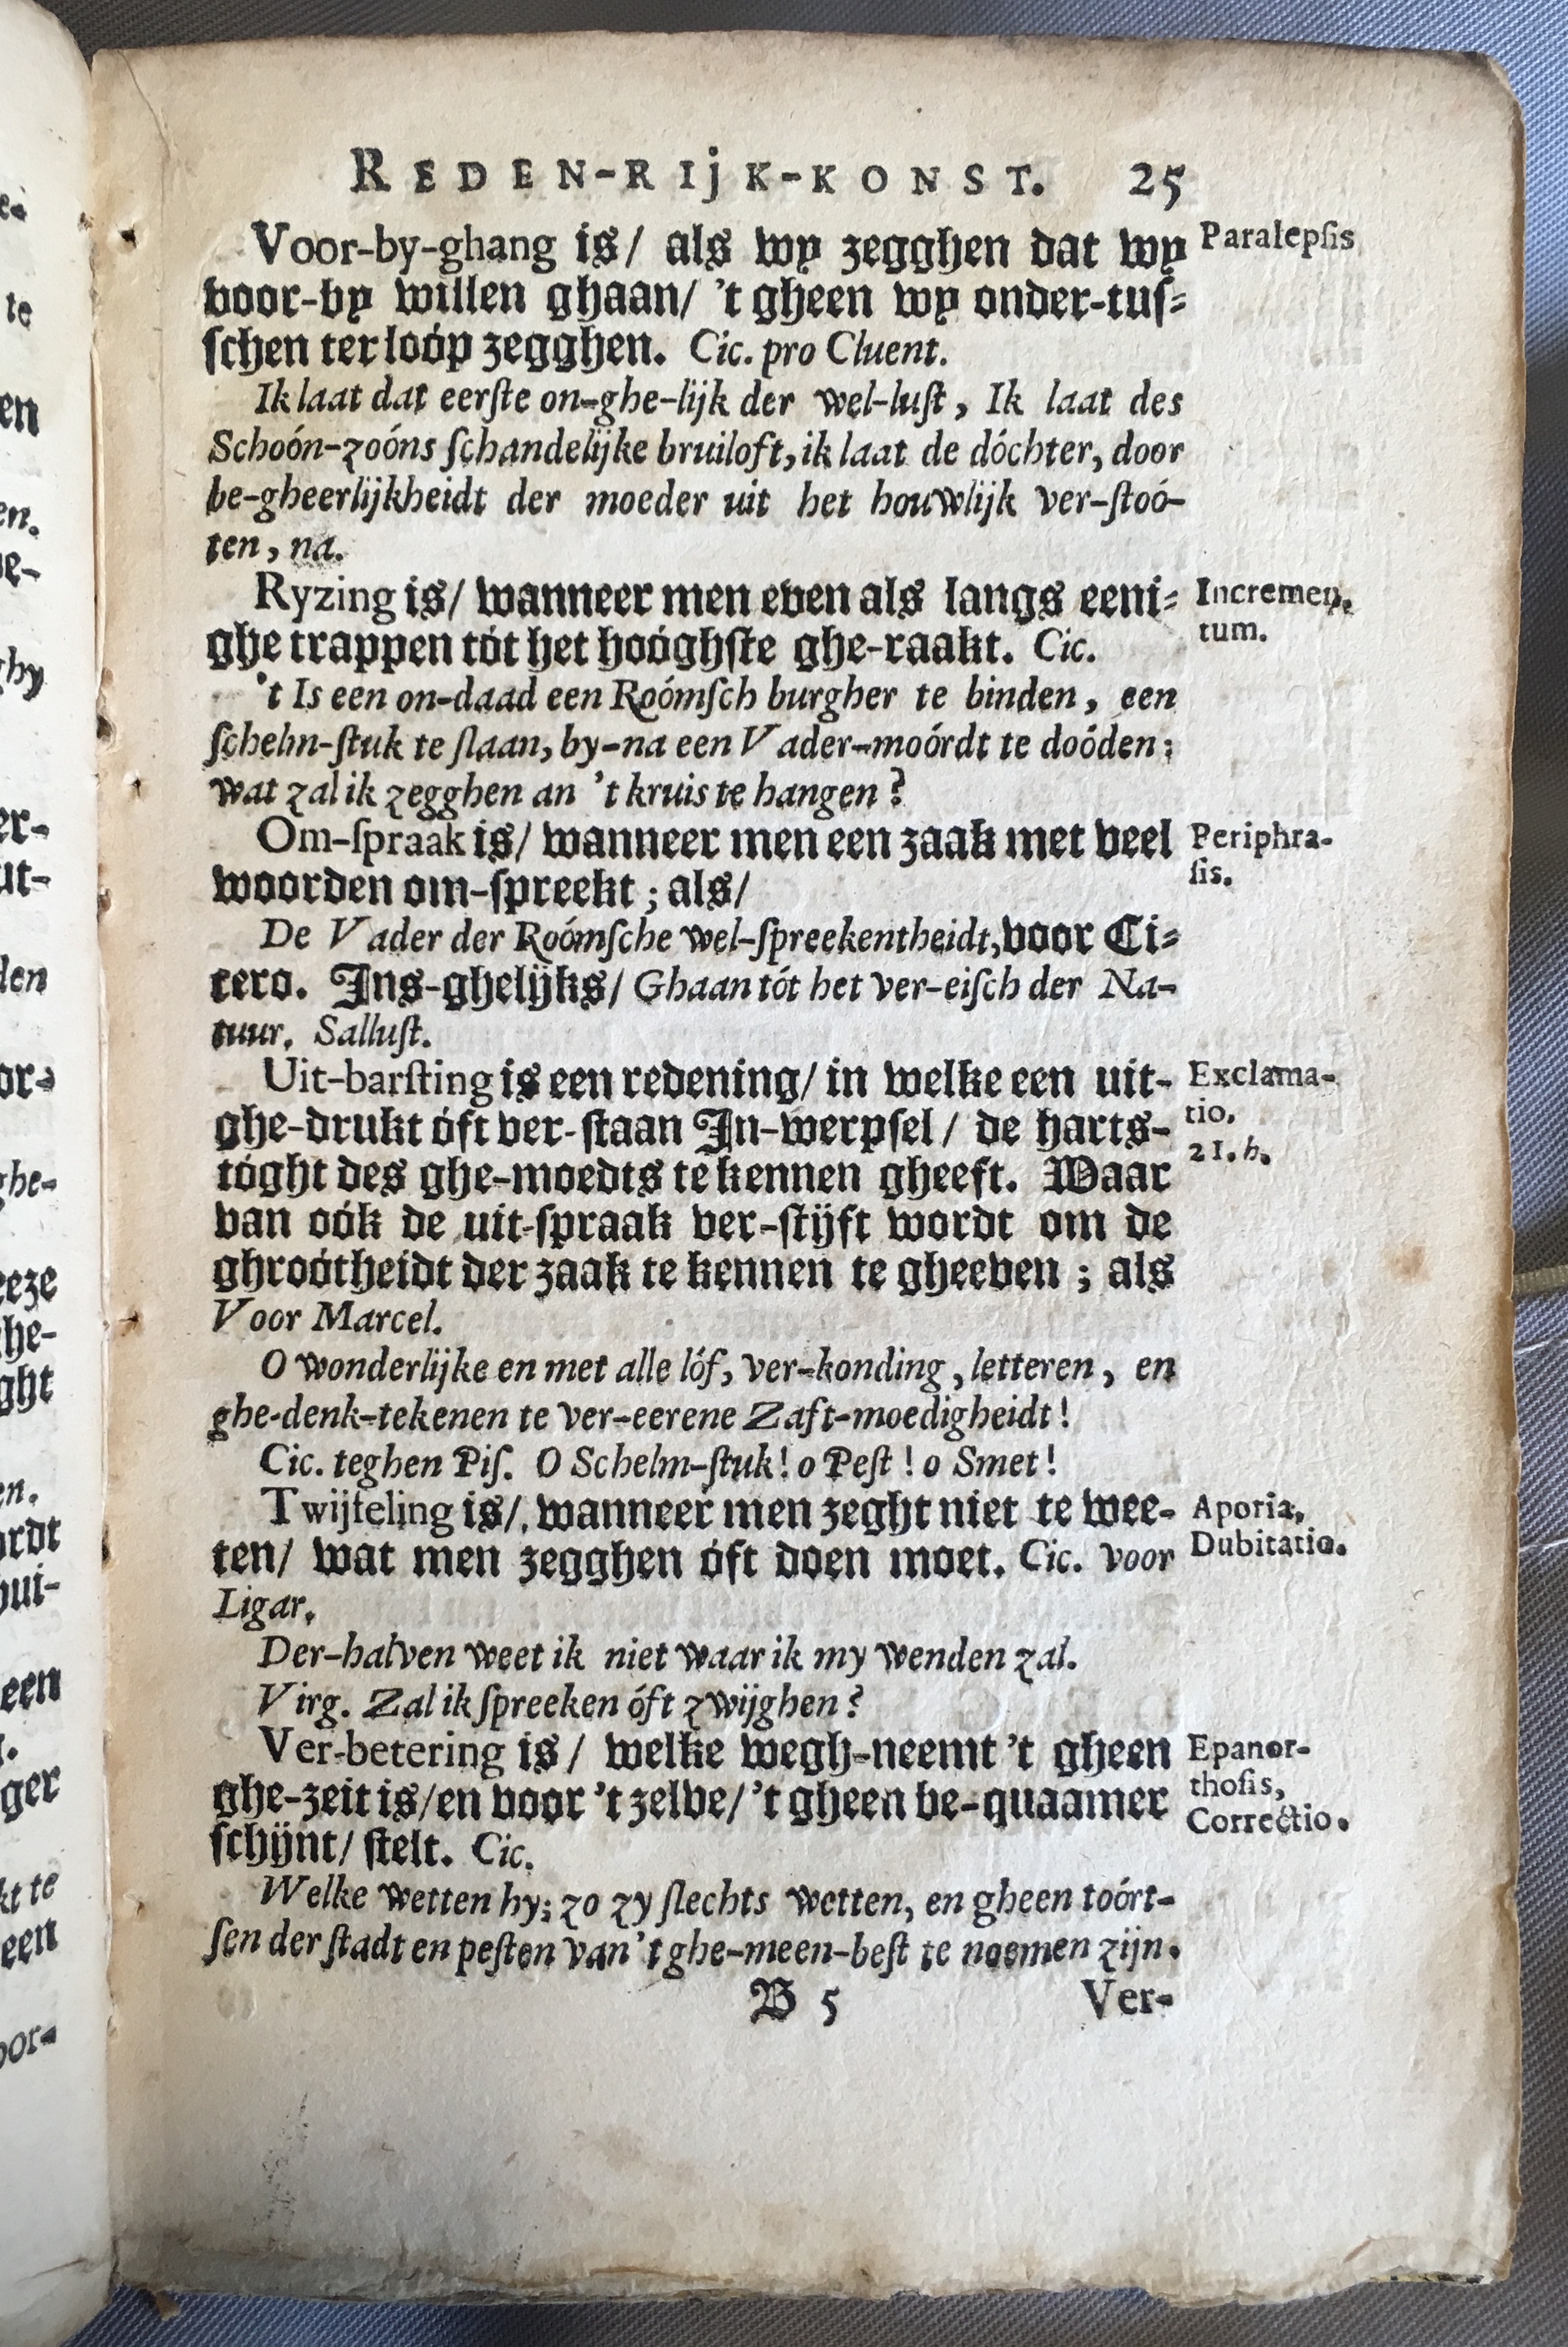 REDEN-RIjK-KONST. 25
Voor-by-ghang is/ als wy zegghen dat wy Paralepſis
voor-by willen ghaan/ 't gheen wy onder-tuſ-
ſchen ter loóp zegghen. Cic. pro Cluent.
Ik laat dat eerſte on-ghe-lijk der wel-luſt, Ik laat des
Schoón-zoóns ſchandelijke bruiloft, ik laat de dóchter, door
be-gheerlijkheidt der moeder uit het houwlijk ver-ſtoó-
ten, na.
Ryzing is/ wanneer men even als langs eeni- Incremen.
ghe trappen tót het hoóghſte ghe-raakt. Cic. tum.
't Is een on-daad een Roómſch burgher te binden, een
ſchelm-ſtuk te ſlaan, by-na een Vader-moórdt te doóden;
wat zal ik zegghen an 't kruis te hangen?
Om-ſpraak is/ wanneer men een zaak met veel Periphra-
woorden om-ſpreekt; als/ ſis.
De Vader der Roómſche wel-ſpreekentheidt, voor Ci-
cero. Ins-ghelijks/ Ghaan tót het ver-eiſch der Na-
tuur. Salluſt.
Uit-barſting is een redening/ in welke een uit- Exclama-
ghe-drukt óft ver-ſtaan In-werpſel/ de harts- tio.
tóght des ghe-moedts te kennen gheeft. Waar 21. h.
van oók de uit-ſpraak ver-ſtijft wordt om de
ghroótheidt der zaak te kennen te gheeven; als
Voor Marcel.
O wonderlijke en met alle lóf, ver-konding, letteren, en
ghe-denk-tekenen te ver-eerene Zaft-moedigheidt!
Cic. teghen Piſ. O Schelm-ſtuk! o Peſt! o Smet!
Twijfeling is/ wanneer men zeght niet te wee- Aporia,
ten/ wat men zegghen óft doen moet. Cic. voor Dubitatio.
Ligar.
Der-halven weet ik niet waar ik my wenden zal.
Virg. Zal ik ſpreeken óft zwijghen?
Ver-betering is/ welke wegh-neemt 't gheen Epanor-
ghe-zeit is/ en voor 't zelve/ 't gheen be-quaamer thoſis,
ſchijnt/ ſtelt. Cic. Correctio.
Welke wetten hy; zo zy ſlechts wetten, en gheen toórt-
ſen der ſtadt en peſten van 't ghe-meen-beſt te noemen zijn.
B 5 Ver-